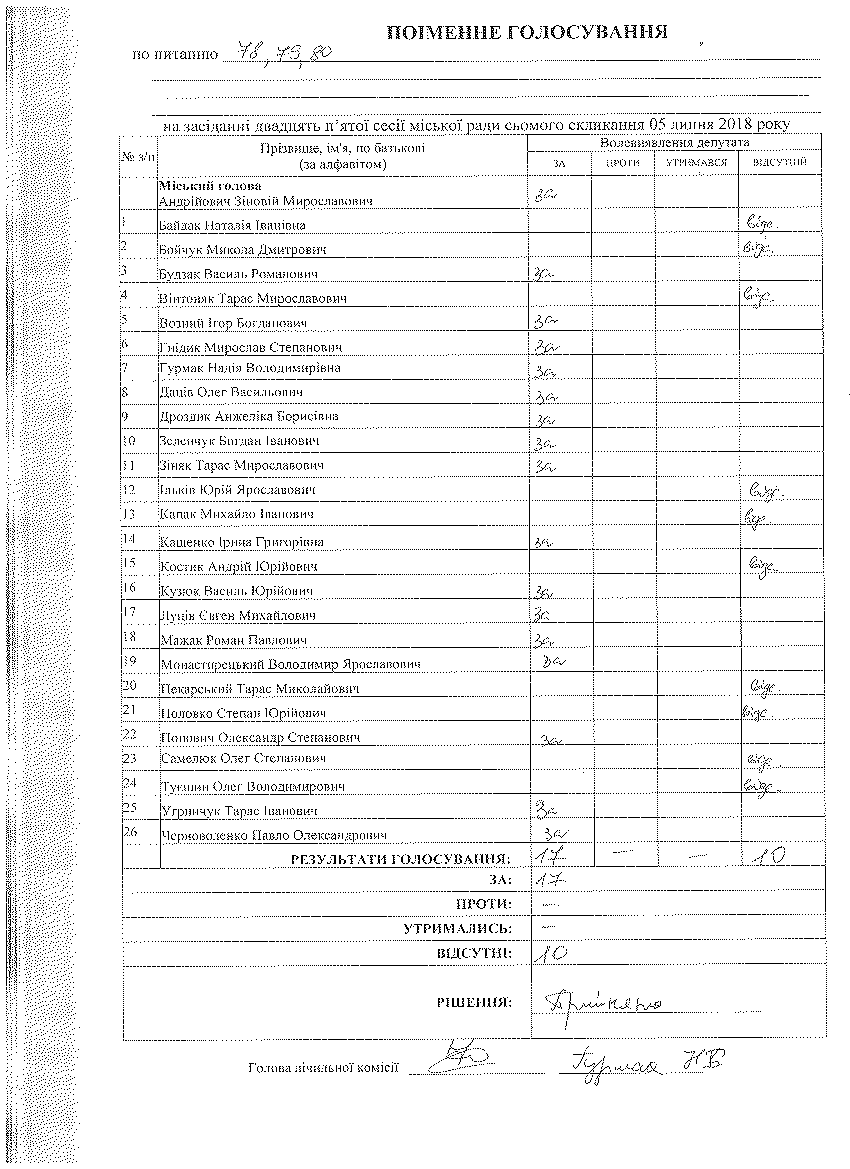 ПОІМЕННЕ ГОЛОСУВАННЯ
по питанню 78, 79, 80
на засіданні двадцять п'ятої сесії міської ради сьомого скликання 05 липня 2018 року
№ з/п Прізвище, ім'я, по батькові (за алфавітом) Волевиявлення депутата
ЗА ПРОТИ УТРИМАВСЯ ВІДСУТНІЙ
Міський голова
Андрійович Зіновій Мирославович за
1 Байдак Наталія Іванівна відс.
2 Бойчук Микола Дмитрович відс.
3 Будзак Василь Романович за
4 Вінтоняк Тарас Мирославович відс.
5 Возний Ігор Богданович за
6 Гнідик Мирослав Степанович за
7 Гурмак Надія Володимирівна за
8 Даців Олег Васильович за
9 Дроздик Анжеліка Борисівна за
10 Зеленчук Богдан Іванович за
11 Зіняк Тарас Мирославович за
12 Ільків Юрій Ярославович відс.
13 Капак Михайло Іванович відс.
14 Кащенко Ірина Григорівна за
15 Костик Андрій Юрійович відс.
16 Кузюк Василь Юрійович за
17 Луців Євген Михайлович за
18 Мажак Роман Павлович за
19 Монастирецький Володимир Ярославович за
20 Пекарський Тарас Миколайович відс
21 Половко Степан Юрійович відс
22 Попович Олександр Степанович за
23 Самелюк Олег Степанович відс.
24 Тукшин Олег Володимирович відс.
25 Угринчук Тарас Іванович за
26 Черноволенко Павло Олександрович за
РЕЗУЛЬТАТИ ГОЛОСУВАННЯ: 17 — — 10
ЗА: 17
ПРОТИ: —
УТРИМАЛИСЬ: —
ВІДСУТНІ: 10
РІШЕННЯ: Прийнято
Голова лічильної комісії Гурмак Н В